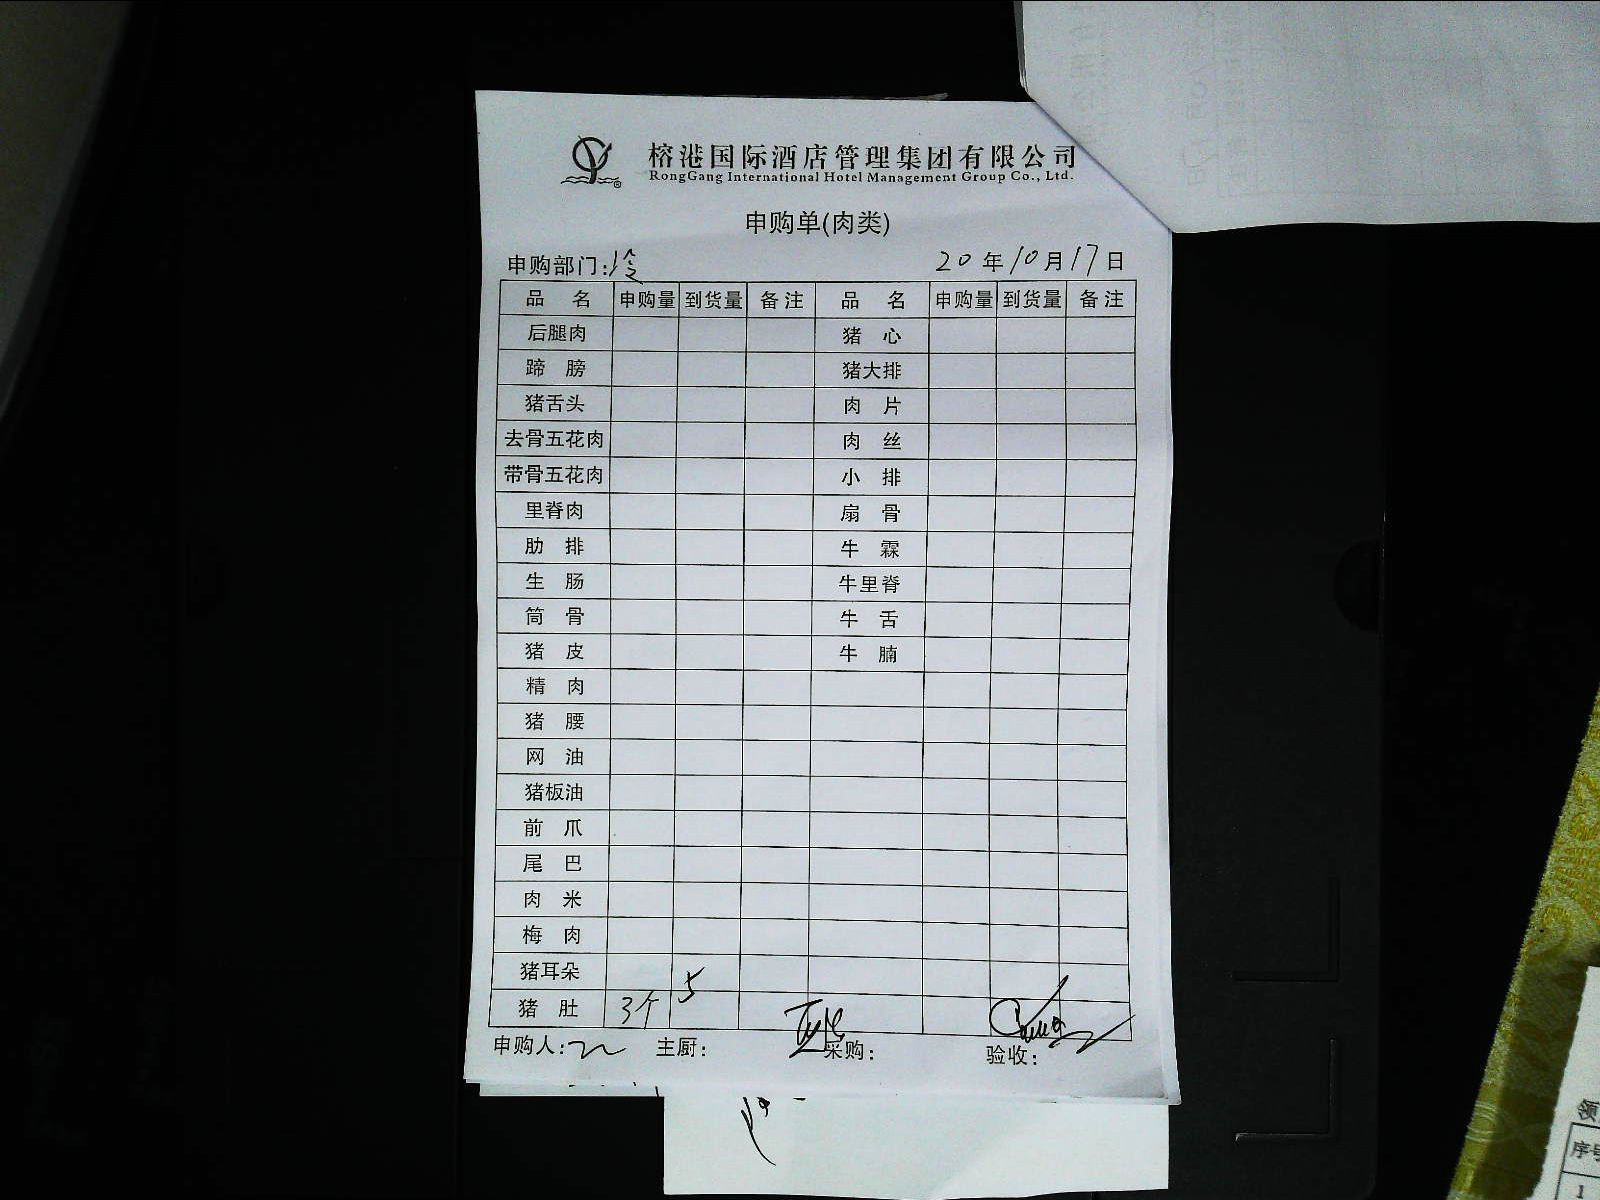 榕港国际酒店管理集团有限公司
RongGang International Hotel Management Group Co., Ltd.
申购单(肉类)
申购部门:冷 20年10月17日
品 名 申购量 到货量 备注 品 名 申购量 到货量 备注
后腿肉 猪 心
蹄 膀 猪大排
猪舌头 肉 片
去骨五花肉 肉 丝
带骨五花肉 小 排
里脊肉 扇 骨
肋 排 牛 霖
生 肠 牛里脊
筒 骨 牛 舌
猪 皮 牛 腩
精 肉
猪 腰
网 油
猪板油
前 爪
尾 巴
肉 米
梅 肉
猪耳朵
猪 肚 3个 5
申购人: 主厨: 采购: 验收:
领
序号
1